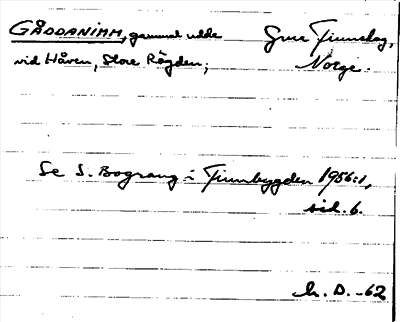 GÅDDANIMM, gammal udde
vid Håven, Store Rögden;
Grue Finnskog,
Norge.
Se S. Bograng i Finnbygden 1956:1,
sid. 6.
h. D. -62